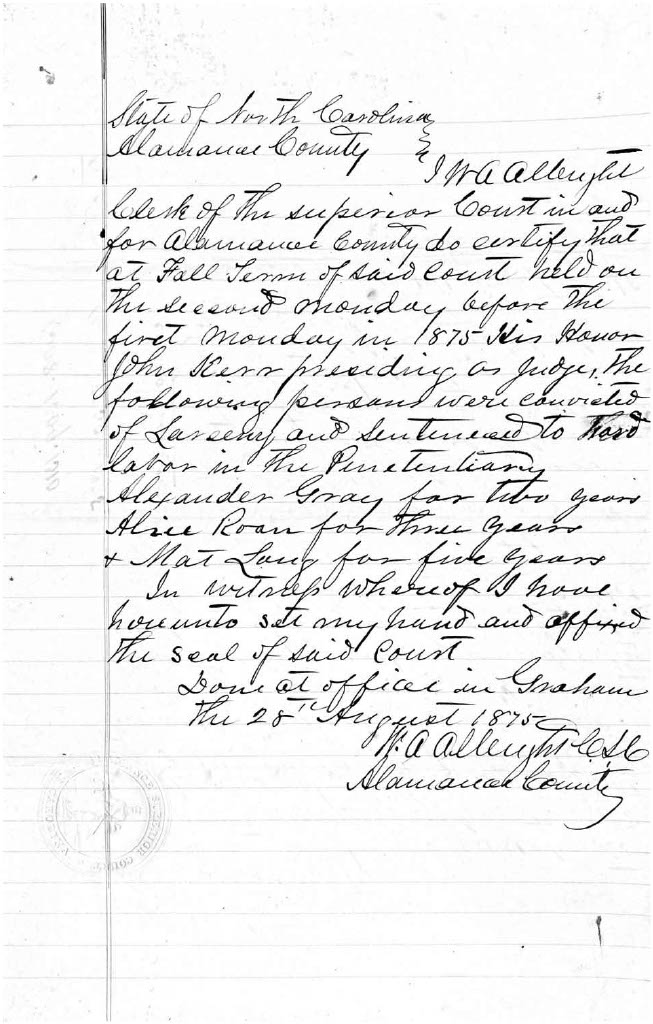 State of North Carolina
Alamance County
I W A Albright
Clerk of the superior Court in and
for Alamance County do certify that
at Fall Term of said Court held on
the second monday before the
first monday in 1875 His Honor
John Kerr presiding as Judge, the
following persons were convicted
of Larseny and sentenced to hard
labor in the Penetentiary
Alexander Gray for two years
Alice Roan for three years
+ Mat Long for five years
In witness whereof I have
hereunto set my hand and affixed
the seal of said Court
Done at office in Graham
the 28th August 1875
W. A Albright C.S.C
Alamance County